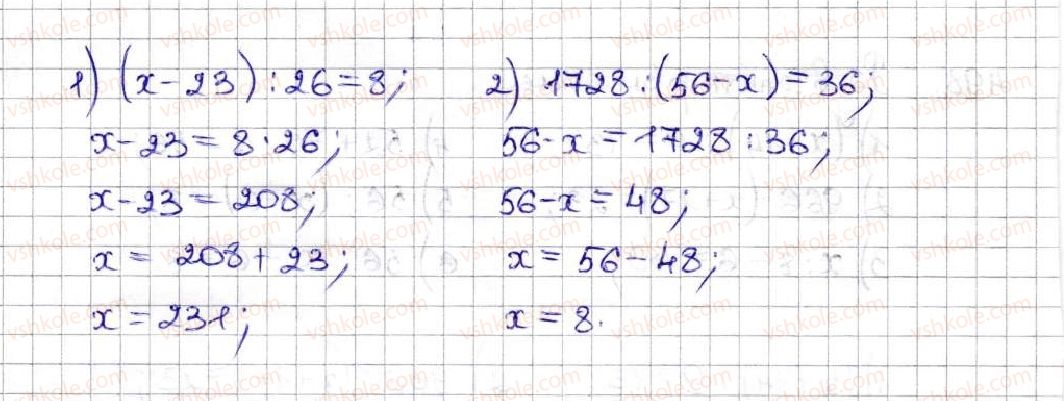 1) (x-23):26=8;
x-23=8·26;
x-23=208;
x=208+23;
x=231;
2) 1728:(56-x)=36;
56-x=1728:36;
56-x=48;
x=56-48;
x=8.
vshkole.com